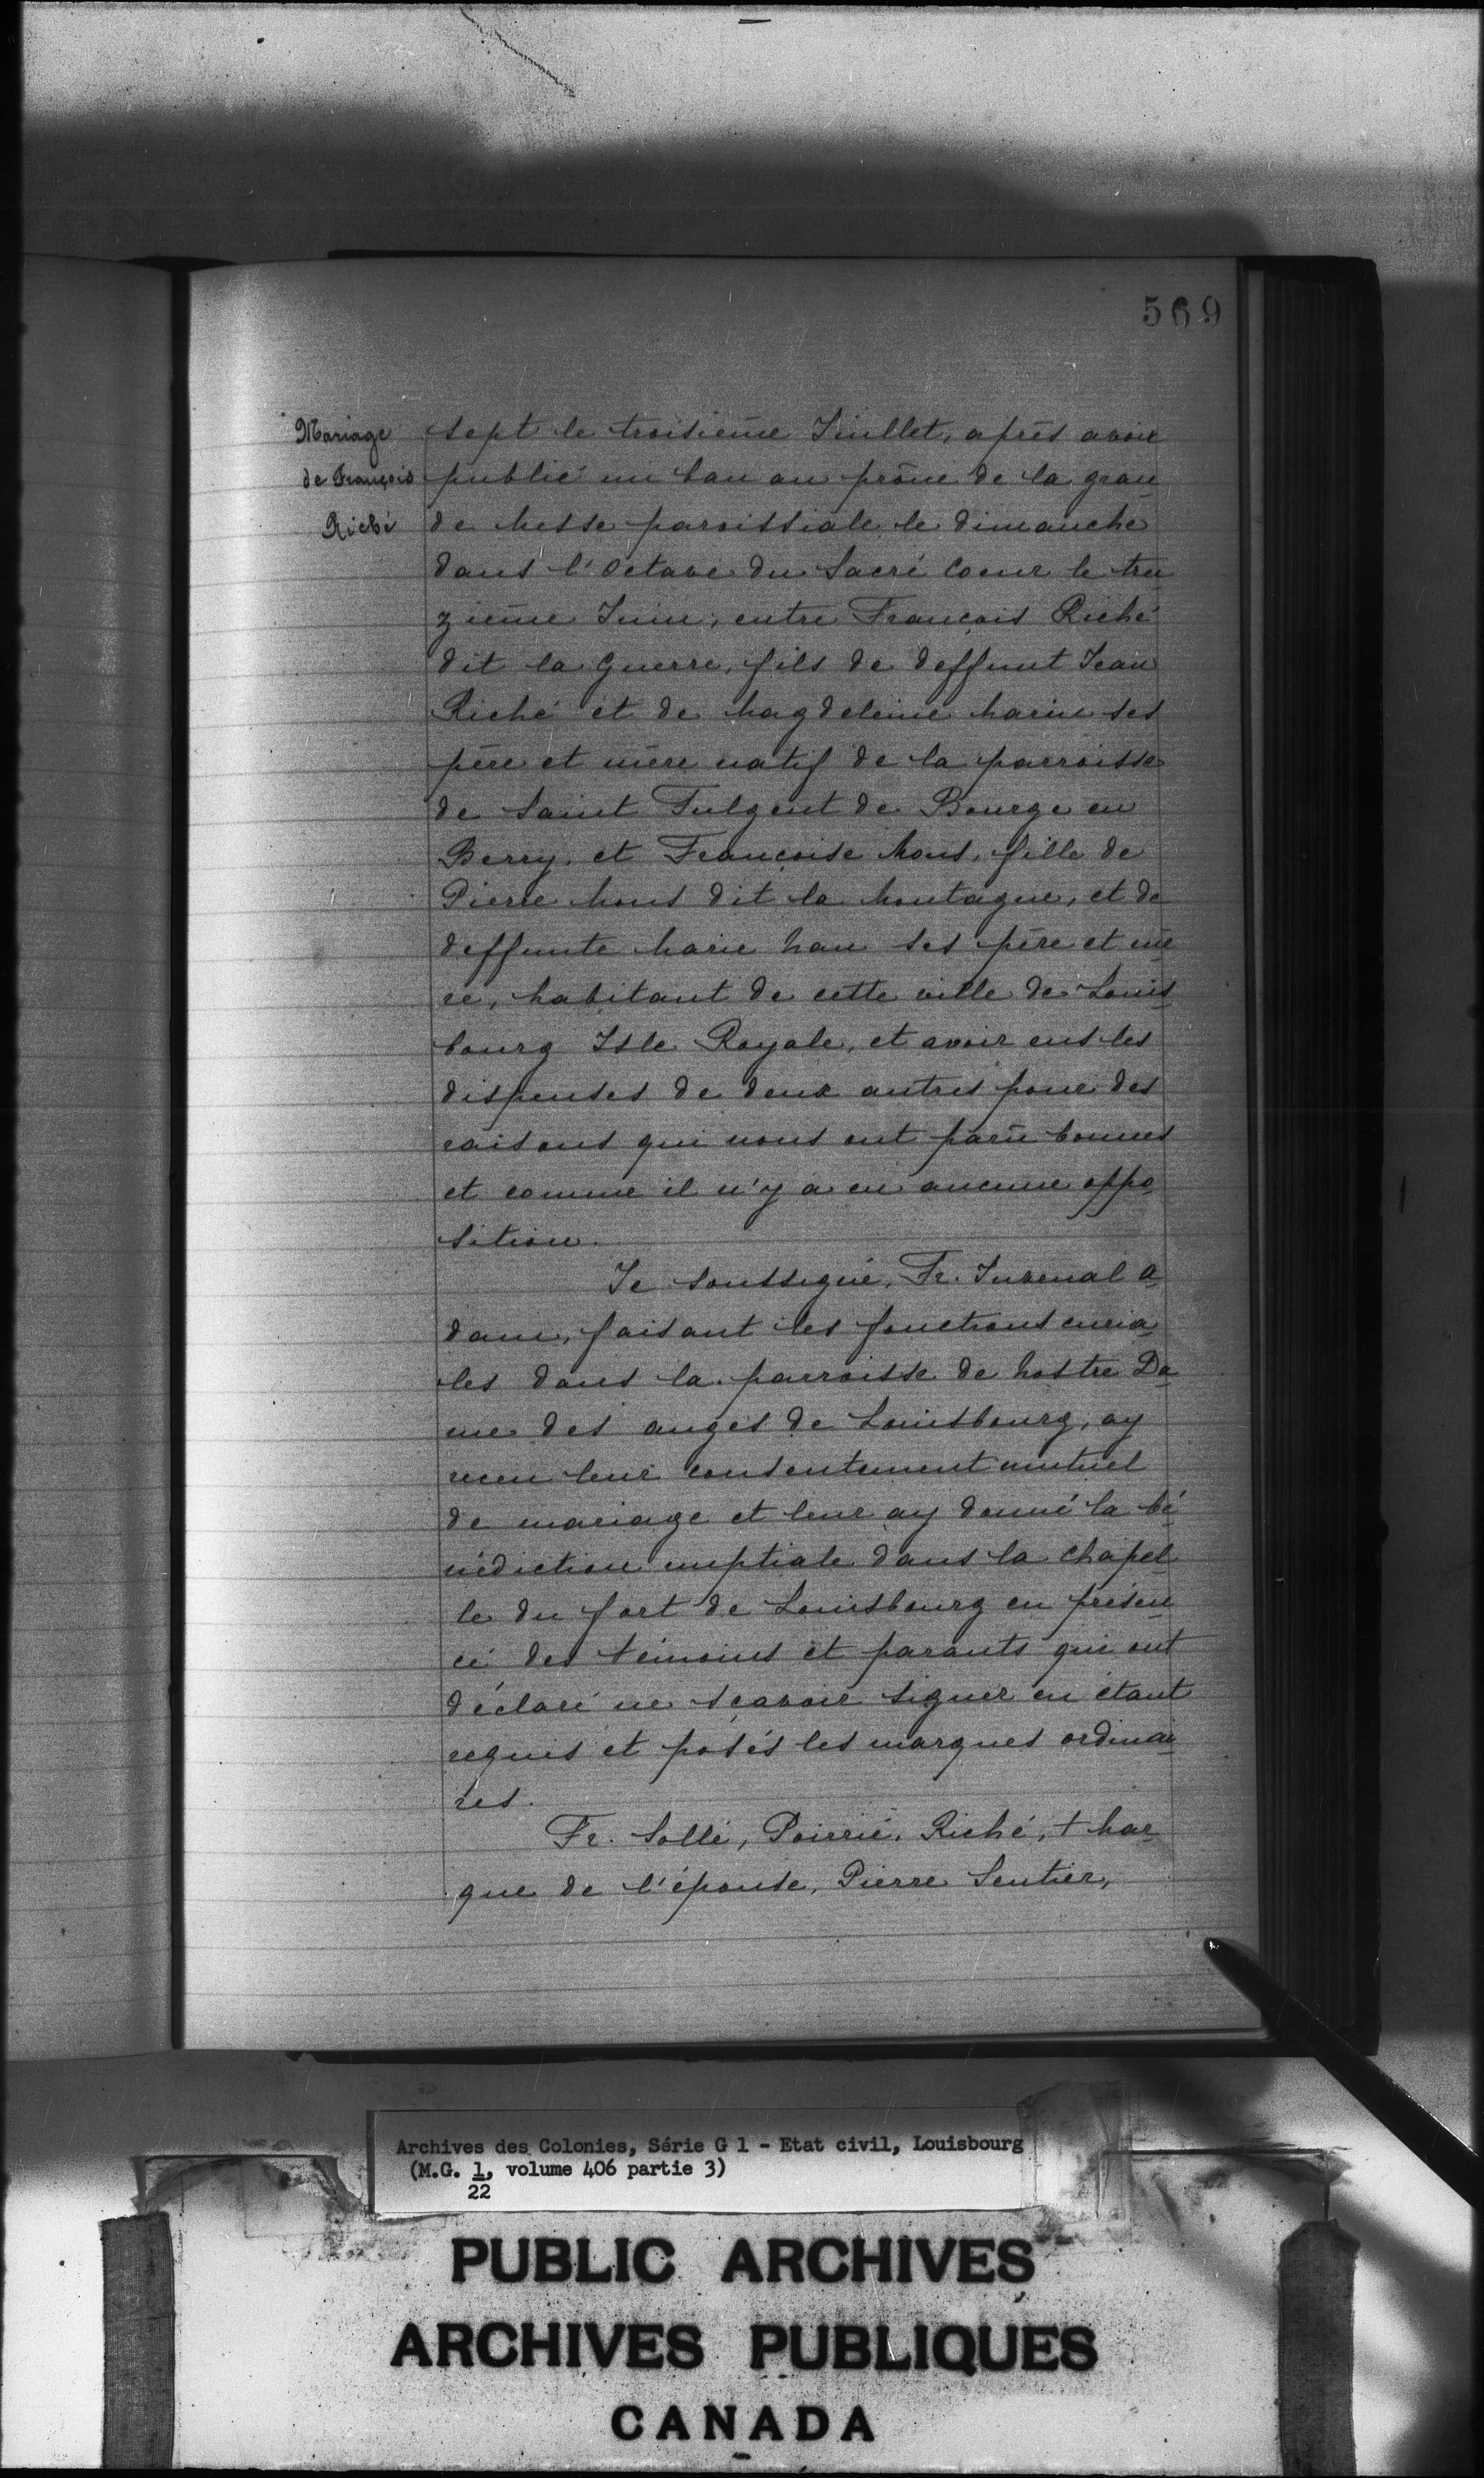 569
Mariage
de François
Riché
sept le troisième Juillet, après avoir
publié un ban au prône de la gran
de Messe paroissiale le dimanche
dans l'Octave du Sacré Coeur le trei
zième Juin, entre François Riché
dit la Guerre, fils de deffunt Jean
Riché et de Magdeleine Marin ses
père et mère natif de la parroisse
de Saint Fulgent de Bourge en
Berry, et Françoise Mous, fille de
Pierre Mous dit la Montagne, et de
deffunte Marie Nau ses père et mè
re, habitant de cette ville de Louis
bourg Isle Royale, et avoir eus les
dispenses de deux autres pour des
raisons qui nous ont parû bonnes
et comme il n'y a eu aucune oppo
sition.
Je soussigné, Fr. Juvenal A
dam, faisant les fonctions curia
les dans la parroisse de Nostre Da
me des anges de Louisbourg, ay
receu leur consentement mutuel
de mariage et leur ay donné la bé
nédiction nuptiale dans la chapel
le du fort de Louisbourg en présen
ce des témoins et parants qui ont
déclaré ne sçavoir signer en étant
requis et posés les marques ordinai
res.
Fr. Sollé, Poirrié, Riché, + Mar
que de l'épouse, Pierre Sentier,
Archives des Colonies, Série G 1 - Etat civil, Louisbourg
(M.G. 1, volume 406 partie 3)
22
PUBLIC ARCHIVES
ARCHIVES PUBLIQUES
CANADA